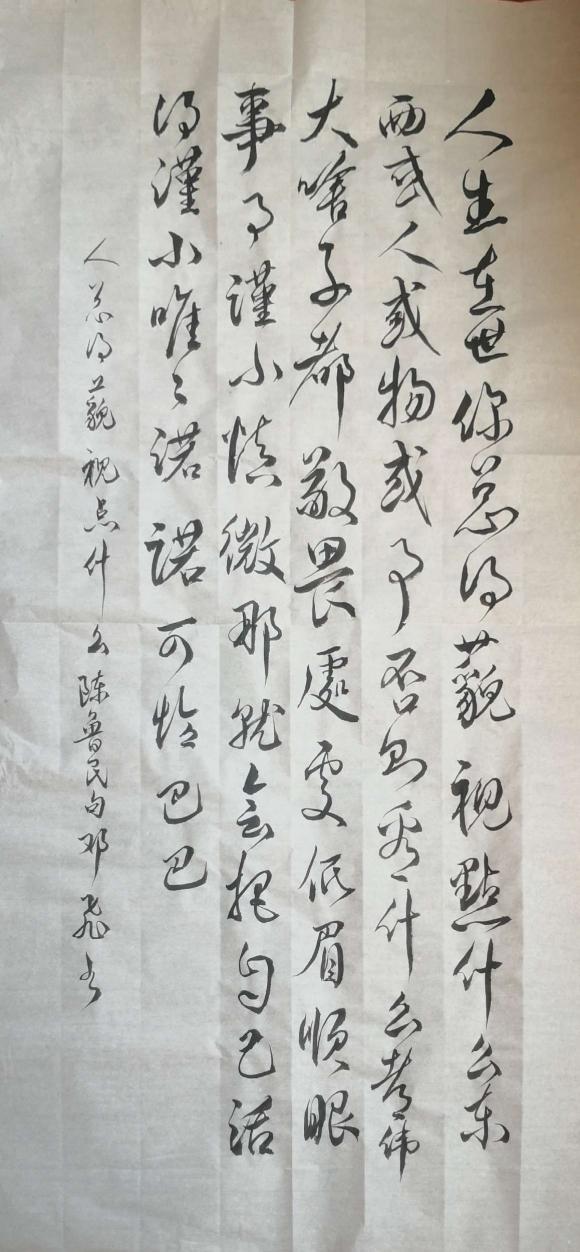 人生在世你总得藐视點什么东
西或人或物或事否则看什么都伟
大啥子都敬畏處處低眉順眼
事事謹小慎微那就会把自己活
得谨小唯々諾諾可怜巴巴
人总得藐视点什么陈鲁民句邓飛书